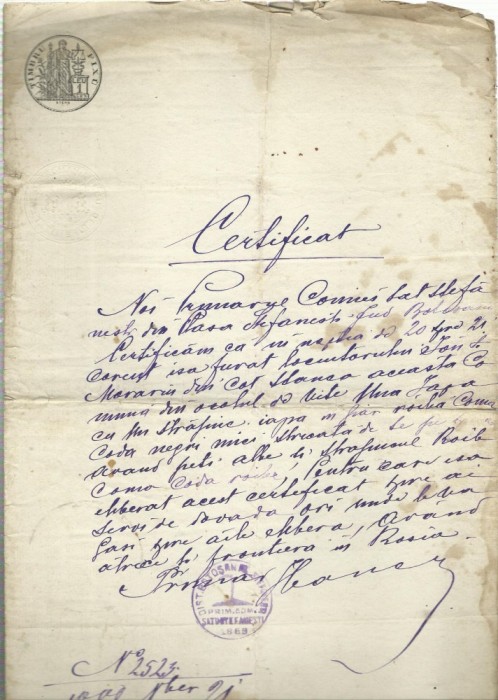 TIMBRU FIX
Certificat
Noi Primarul Comunei Sat Stefa
nesti din Plasa Stefanesti Jud Botosani
Certificăm că in noptea de 20 spre 21
corent i sa furat locuitorului Ion
Morariu din Cot Stanca aceasta Co
muna din ocolul de vite Una Iapa
cu un strafinc iapa in par roiba coma
coda negri mici
avand peti albe si strafincul Roib
coma coda roibe Pentru care i sa
eliberat acest certificat spre ai
servi de dovada ori unde le va
gasi spre aile elibera, avand
a trece si frontiera in Rosia
Primar
PRIM. COM.
SAT. STEFANESTI
No 2523